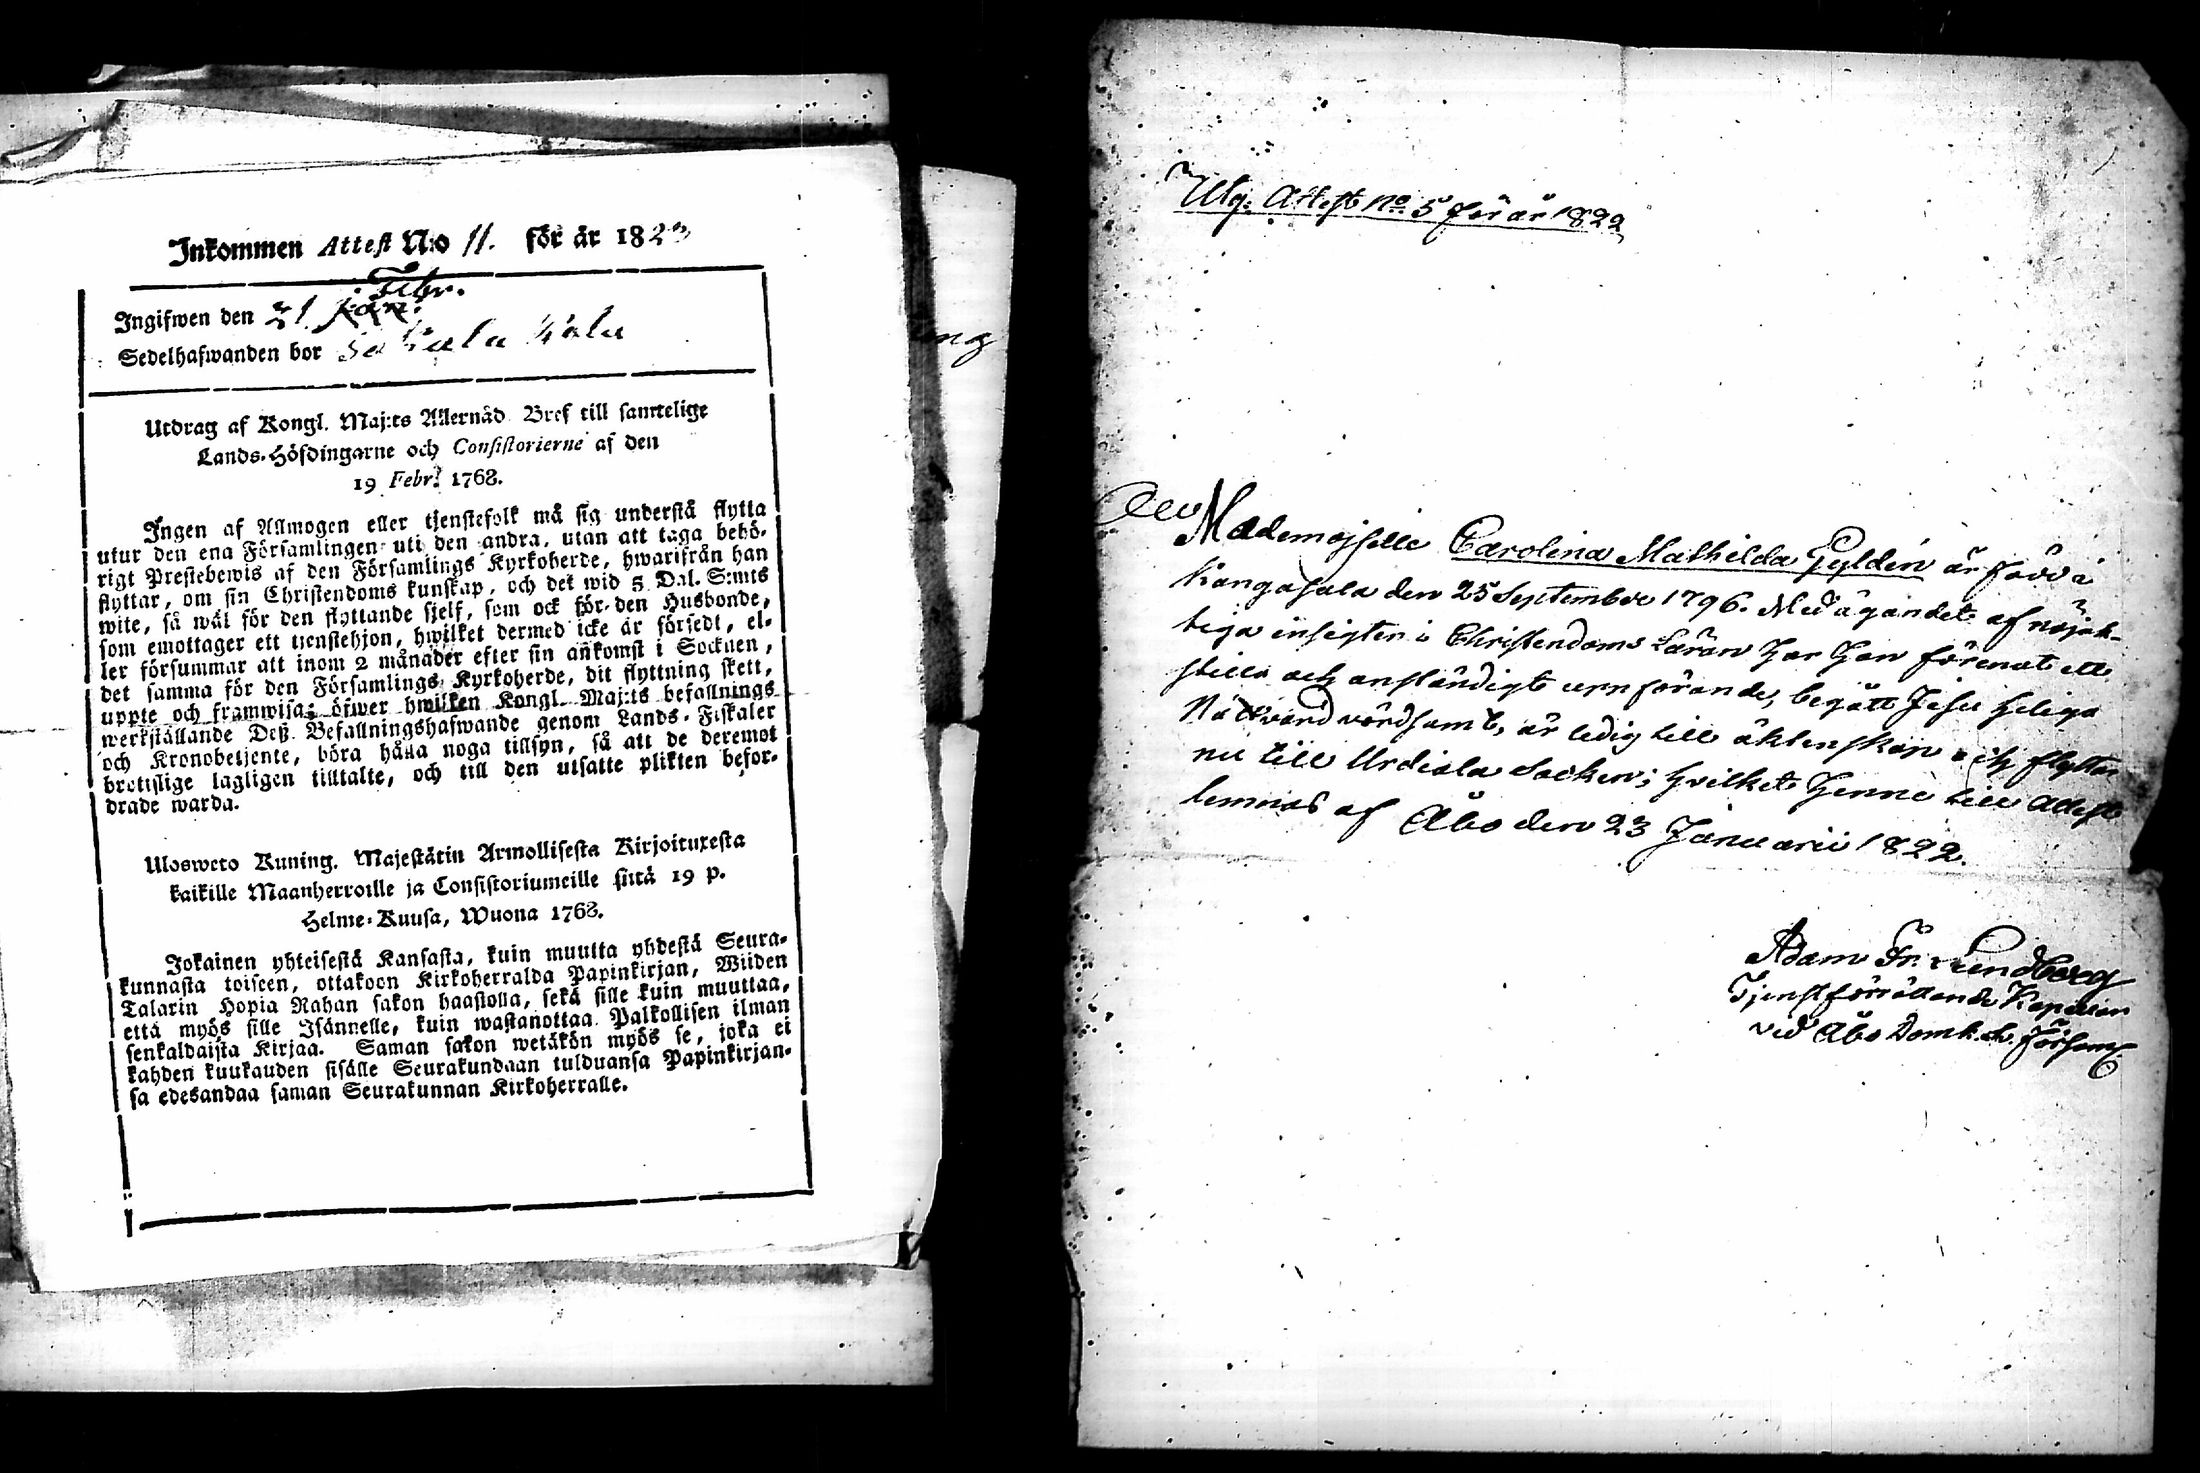 Inkommen Attest N:o 11. för år 1822
Febr.
Ingifwen den 21 Jan:
Sedelhafwanden bor
Utdrag af Kongl. Maj:ts Allernåd. Bref till samtelige
Lands-Höfdingarne och Consistorierne af den
19 Febr. 1768.
Ingen af Allmogen eller tjenstefolk må sig understå flytta
utur den ena Församlingen uti den andra, utan att taga behö-
rigt Prestebewis af den Församlings Kyrkoherde, hwarifrån han
flyttar, om sin Christendoms kunskap, och det wid 5 Dal. S:mts
wite, så wäl för den flyttande sjelf, som ock för den Husbonde,
som emottager ett tjenstehjon, hwilket dermed icke är försedt, el-
ler försummar att inom 2 månader efter sin ankomst i Socknen,
det samma för den Församlings Kyrkoherde, dit flyttning skett,
uppte och framwisa; öfwer hwilken Kongl. Maj:ts befallnings
werkställande Deß Befallningshafwande genom Lands-Fiskaler
och Kronobetjente, böra hålla noga tillsyn, så att de deremot
brottslige lagligen tilltalte, och till den utsatte plikten befor-
drade warda.
Ulosweto Kuning. Majestätin Armollisesta Kirjoituxesta
kaikille Maanherroille ja Consistoriumeille siitä 19 p.
Helme-Kuusa, Wuona 1768.
Jokainen yhteisestä Kansasta, kuin muutta yhdestä Seura-
kunnasta toiseen, ottakoon Kirkoherralda Papinkirjan, Wiiden
Talarin Hopia Rahan sakon haastolla, sekä sille kuin muuttaa,
että myös sille Isännelle, kuin wastanottaa Palkollisen ilman
senkaldaista Kirjaa. Saman sakon wetäkön myös se, joka ei
kahden kuukauden sisälle Seurakundaan tulduansa Papinkirjan-
sa edesandaa saman Seurakunnan Kirkoherralle.
Utg: Attest No 5 för år 1822
Mademoiselle Carolina Mathilda Gyldén är född i
Kangasala den 25 September 1796. Med ägandet af nöjak-
tiga insigter i Christendoms Läran har hon förenat ett
stilla och anständigt uppförande, begått Jesu heliga
Nattvard vördsamt, är ledig till äktenskap och flyttar
nu till Urdiala Socken; hvilket henne till Attest
lemnas af Åbo den 23 Januarii 1822.
Adam Fr. Lundberg
Tjenstförrättande Kaplan
vid Åbo Domk. Förs: